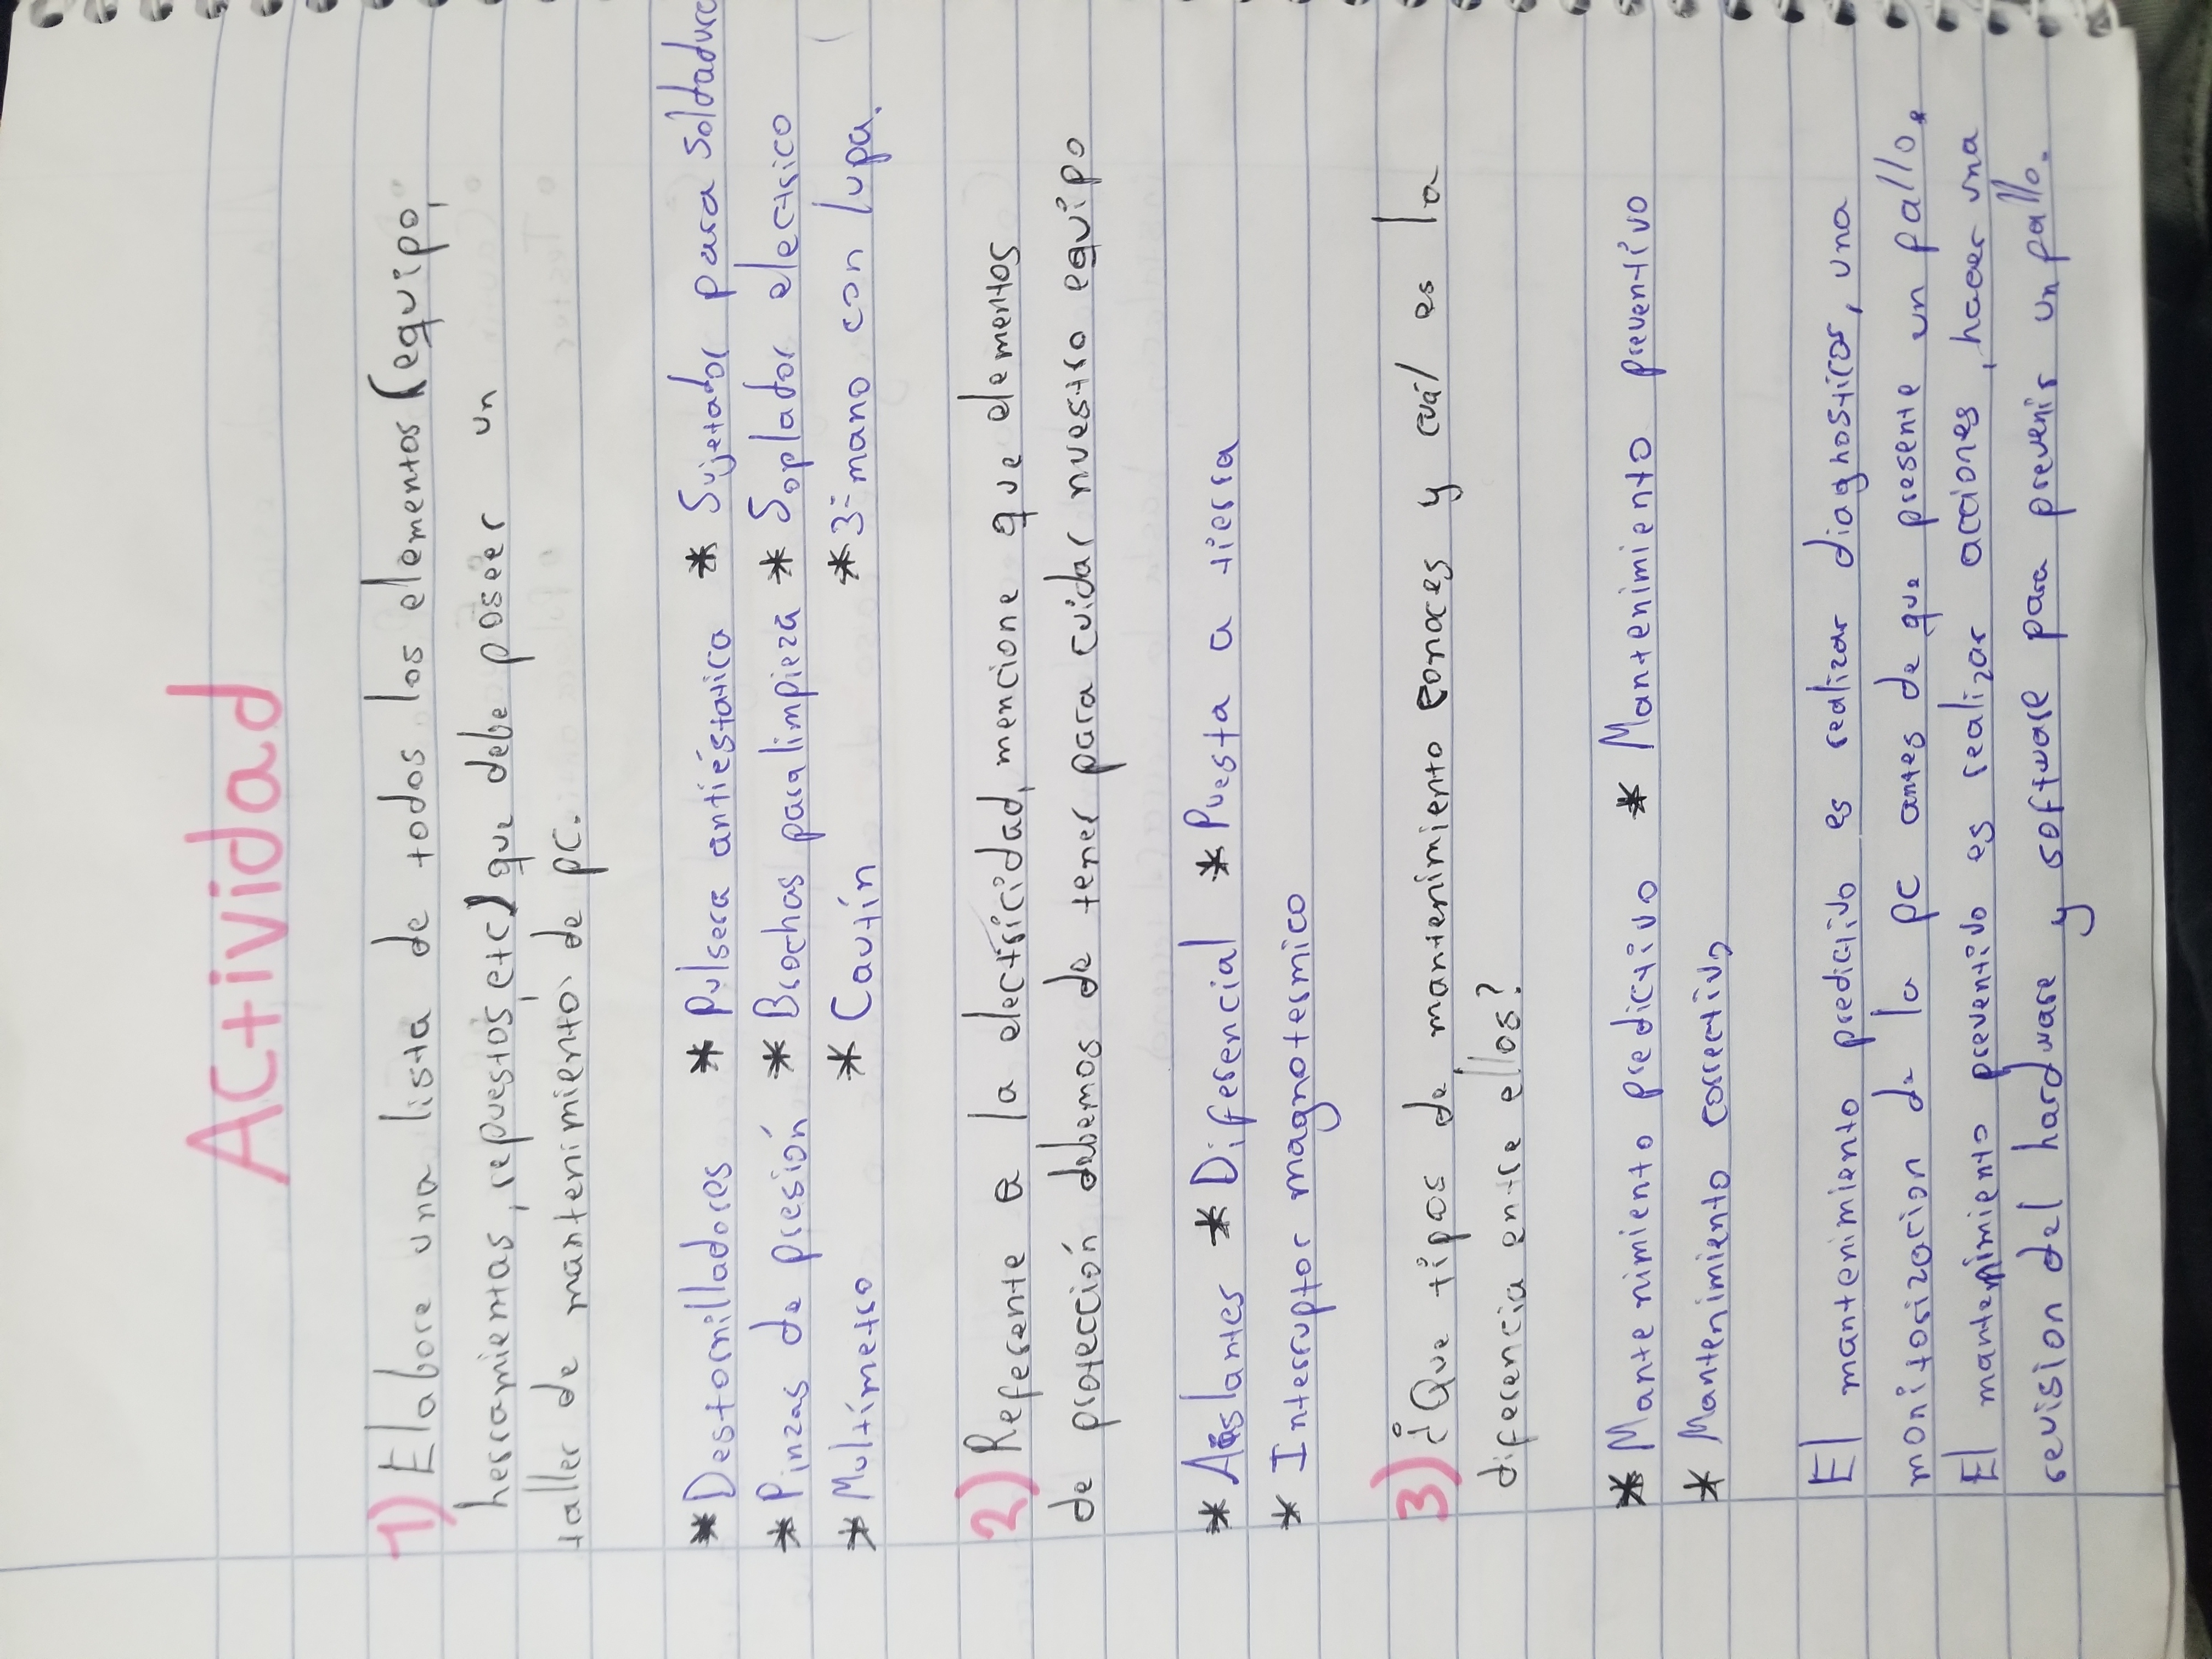 Actividad
1) Elabore una lista de todos los elementos (equipo,
herramientas, repuestos, etc) que debe poseer un
taller de mantenimiento de pc.
* Destornilladores * Pulsera antiéstatica * Sujetador para soldadura
* Pinzas de presión * Brochas para limpieza * Soplador electrico
* Multímetro * Cautín * 3= mano con lupa.
2) Referente a la electricidad, mencione que elementos
de protección debemos de tener para cuidar nuestro equipo
* Aislantes * Diferencial * Puesta a tierra
* Interruptor magnotermico
3) ¿Que tipos de mantenimiento conoces y cuál es la
diferencia entre ellos?
* Mantenimiento predictivo * Mantenimiento preventivo
* Mantenimiento correctivo
El mantenimiento predictivo es realizar diagnosticos, una
monitorizacion de la pc antes de que presente un fallo.
El mantenimiento preventivo es realizar acciones, hacer una
revision del hardware y software para prevenir un fallo.